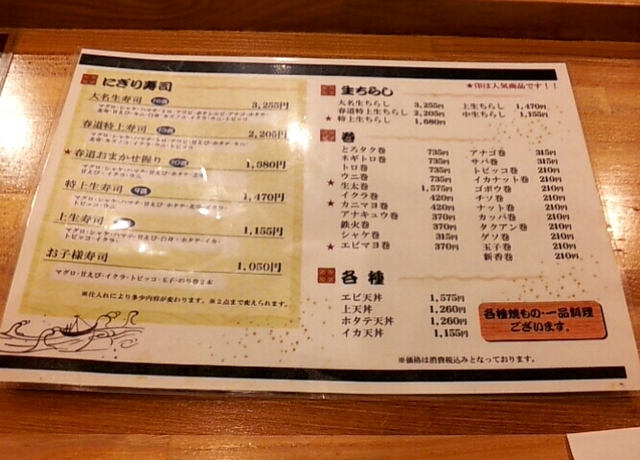 にぎり寿司
大名生寿司 3,255円
春道特上寿司 2,205円
★春道おまかせ握り 1,880円
特上生寿司 1,470円
上生寿司 1,155円
お子様寿司 1,050円
マグロ・甘えび・イクラ・トビッコ・玉子・のり巻2本
※仕入れにより多少内容が変わります。※2点まで変えられます。
★印は人気商品です!!
生ちらし
大名生ちらし 3,255円 上生ちらし 1,470円
春道特上生ちらし 2,205円 中生ちらし 1,155円
★特上生ちらし 1,680円
巻
とろタク巻 735円 アナゴ巻 315円
ネギトロ巻 735円 サバ巻 315円
トロ巻 735円 トビッコ巻 210円
ウニ巻 735円 イカナット巻 210円
★生太巻 1,575円 ゴボウ巻 210円
イクラ巻 420円 チソ巻 210円
★カニマヨ巻 420円 ナット巻 210円
アナキュウ巻 370円 カッパ巻 210円
鉄火巻 370円 タクアン巻 210円
シャケ巻 315円 ゲソ巻 210円
★エビマヨ巻 370円 玉子巻 210円
新香巻 210円
各種
エビ天丼 1,575円
上天丼 1,260円
ホタテ天丼 1,260円
イカ天丼 1,155円
各種焼もの・一品料理
ございます。
※価格は消費税込みとなっております。